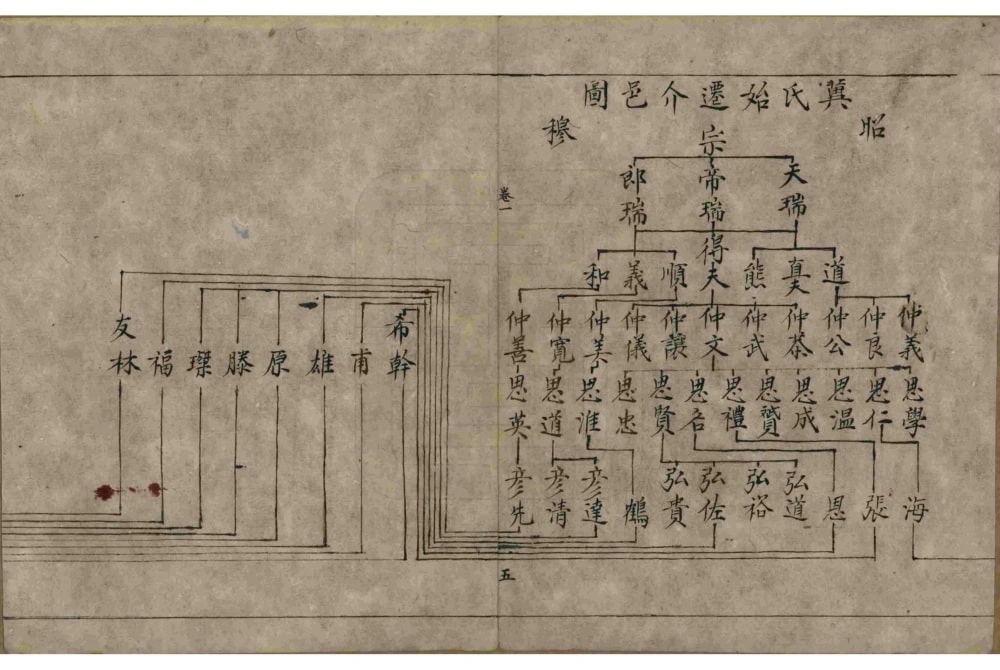 冀氏始遷介邑圖
昭
穆
宗
天瑞
帝瑞
郎瑞
道
真
熊
得夫
順
義
和
仲義
仲良
仲公
仲恭
仲武
仲文
仲讓
仲儀
仲美
仲寬
仲善
思學
思仁
思温
思成
思贇
思禮
思名
思賢
思忠
思淮
思道
思英
海
張
恩
弘道
弘裕
弘佐
弘貴
鶴
彦達
彦清
彦先
卷一
五
希幹
甫
雄
原
滕
璨
福
友林